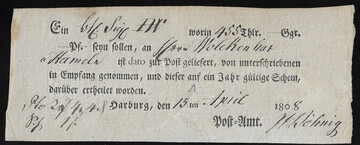 Ein worin 455 Thlr. Ggr.
Pf. seyn sollen, an Herrn
a Hameln ist dato zur Post geliefert, von unterschriebenen
in Empfang genommen, und dieser auf ein Jahr gültige Schein,
darüber ertheilet worden.
Harburg, den 13 April 1808
Post-Amt.